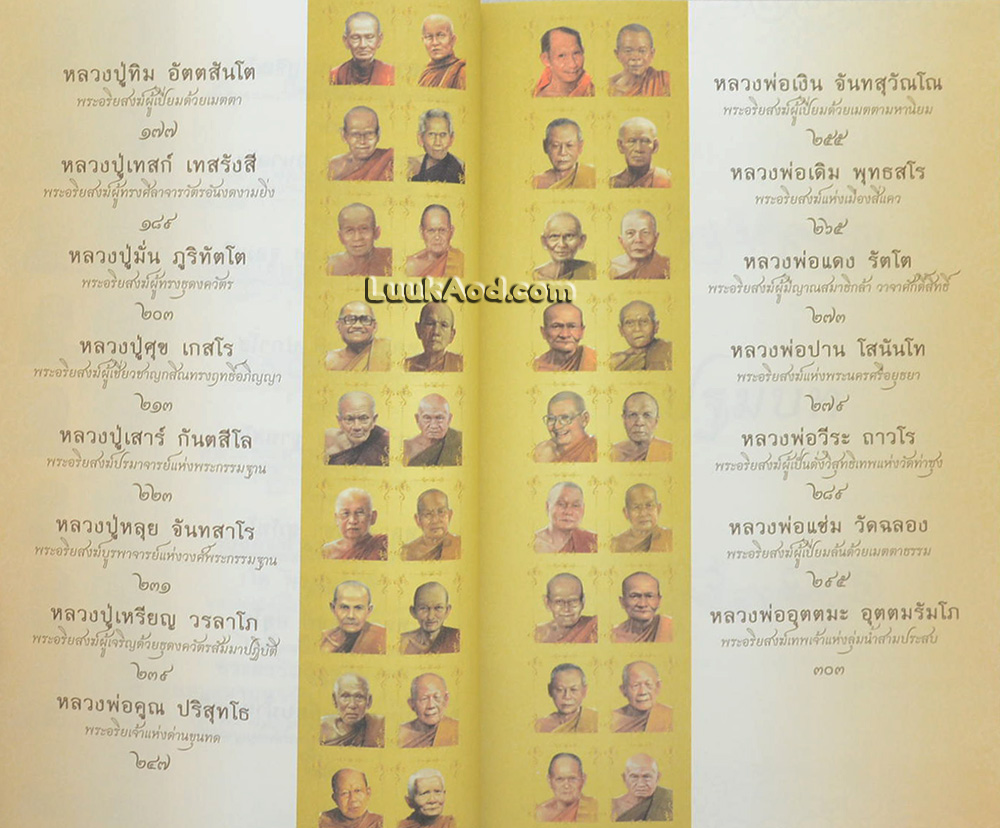 หลวงปู่ทิม อัตตสันโต
พระอริยสงฆ์ผู้เปี่ยมด้วยเมตตา
๑๗๗
หลวงปู่เทสก์ เทสรังสี
พระอริยสงฆ์ผู้ทรงศีลาจารวัตรอันงดงามยิ่ง
๑๘๙
หลวงปู่มั่น ภูริทัตโต
พระอริยสงฆ์ผู้ทรงธุดงควัตร
๒๐๓
หลวงปู่ศุข เกสโร
พระอริยสงฆ์ผู้เชี่ยวชาญกสิณทรงฤทธิ์อภิญญา
๒๑๓
หลวงปู่เสาร์ กันตสีโล
พระอริยสงฆ์ปรมาจารย์แห่งพระกรรมฐาน
๒๒๓
หลวงปู่หลุย จันทสาโร
พระอริยสงฆ์บูรพาจารย์แห่งวงศ์พระกรรมฐาน
๒๓๑
หลวงปู่เหรียญ วรลาโภ
พระอริยสงฆ์ผู้เจริญด้วยธุดงควัตรสัมมาปฏิบัติ
๒๓๙
หลวงพ่อคูณ ปริสุทโธ
พระอริยเจ้าแห่งด่านขุนทด
๒๔๗
LuukAod.com
หลวงพ่อเงิน จันทสุวัณโณ
พระอริยสงฆ์ผู้เปี่ยมด้วยเมตตามหานิยม
๒๕๕
หลวงพ่อเดิม พุทธสโร
พระอริยสงฆ์แห่งเมืองสี่แคว
๒๖๕
หลวงพ่อแดง รัตโต
พระอริยสงฆ์ผู้มีญาณสมาธิกล้า วาจาศักดิ์สิทธิ์
๒๗๓
หลวงพ่อปาน โสนันโท
พระอริยสงฆ์แห่งพระนครศรีอยุธยา
๒๗๙
หลวงพ่อวีระ ถาวโร
พระอริยสงฆ์ผู้เป็นดั่งวิสุทธิเทพแห่งวัดท่าซุง
๒๘๙
หลวงพ่อแช่ม วัดฉลอง
พระอริยสงฆ์ผู้เปี่ยมล้นด้วยเมตตาธรรม
๒๙๕
หลวงพ่ออุตตมะ อุตตมรัมโภ
พระอริยสงฆ์เทพเจ้าแห่งลุ่มน้ำสามประสบ
๓๐๓